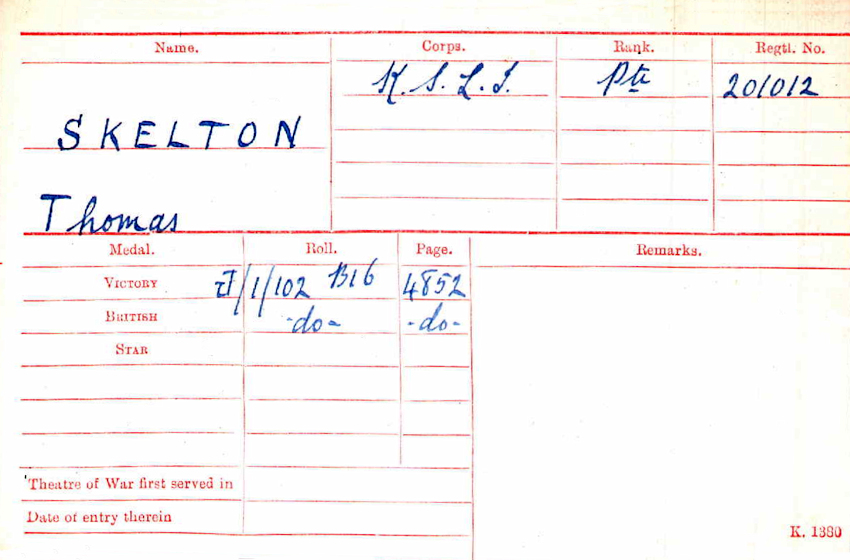 Name. Corps. Rank. Regtl. No.
K. S. L. I. Pte 201012
SKELTON
Thomas
Medal. Roll. Page. Remarks.
VICTORY J/1/102 B16 4852
BRITISH -do- -do-
STAR
Theatre of War first served in
Date of entry therein
K. 1380